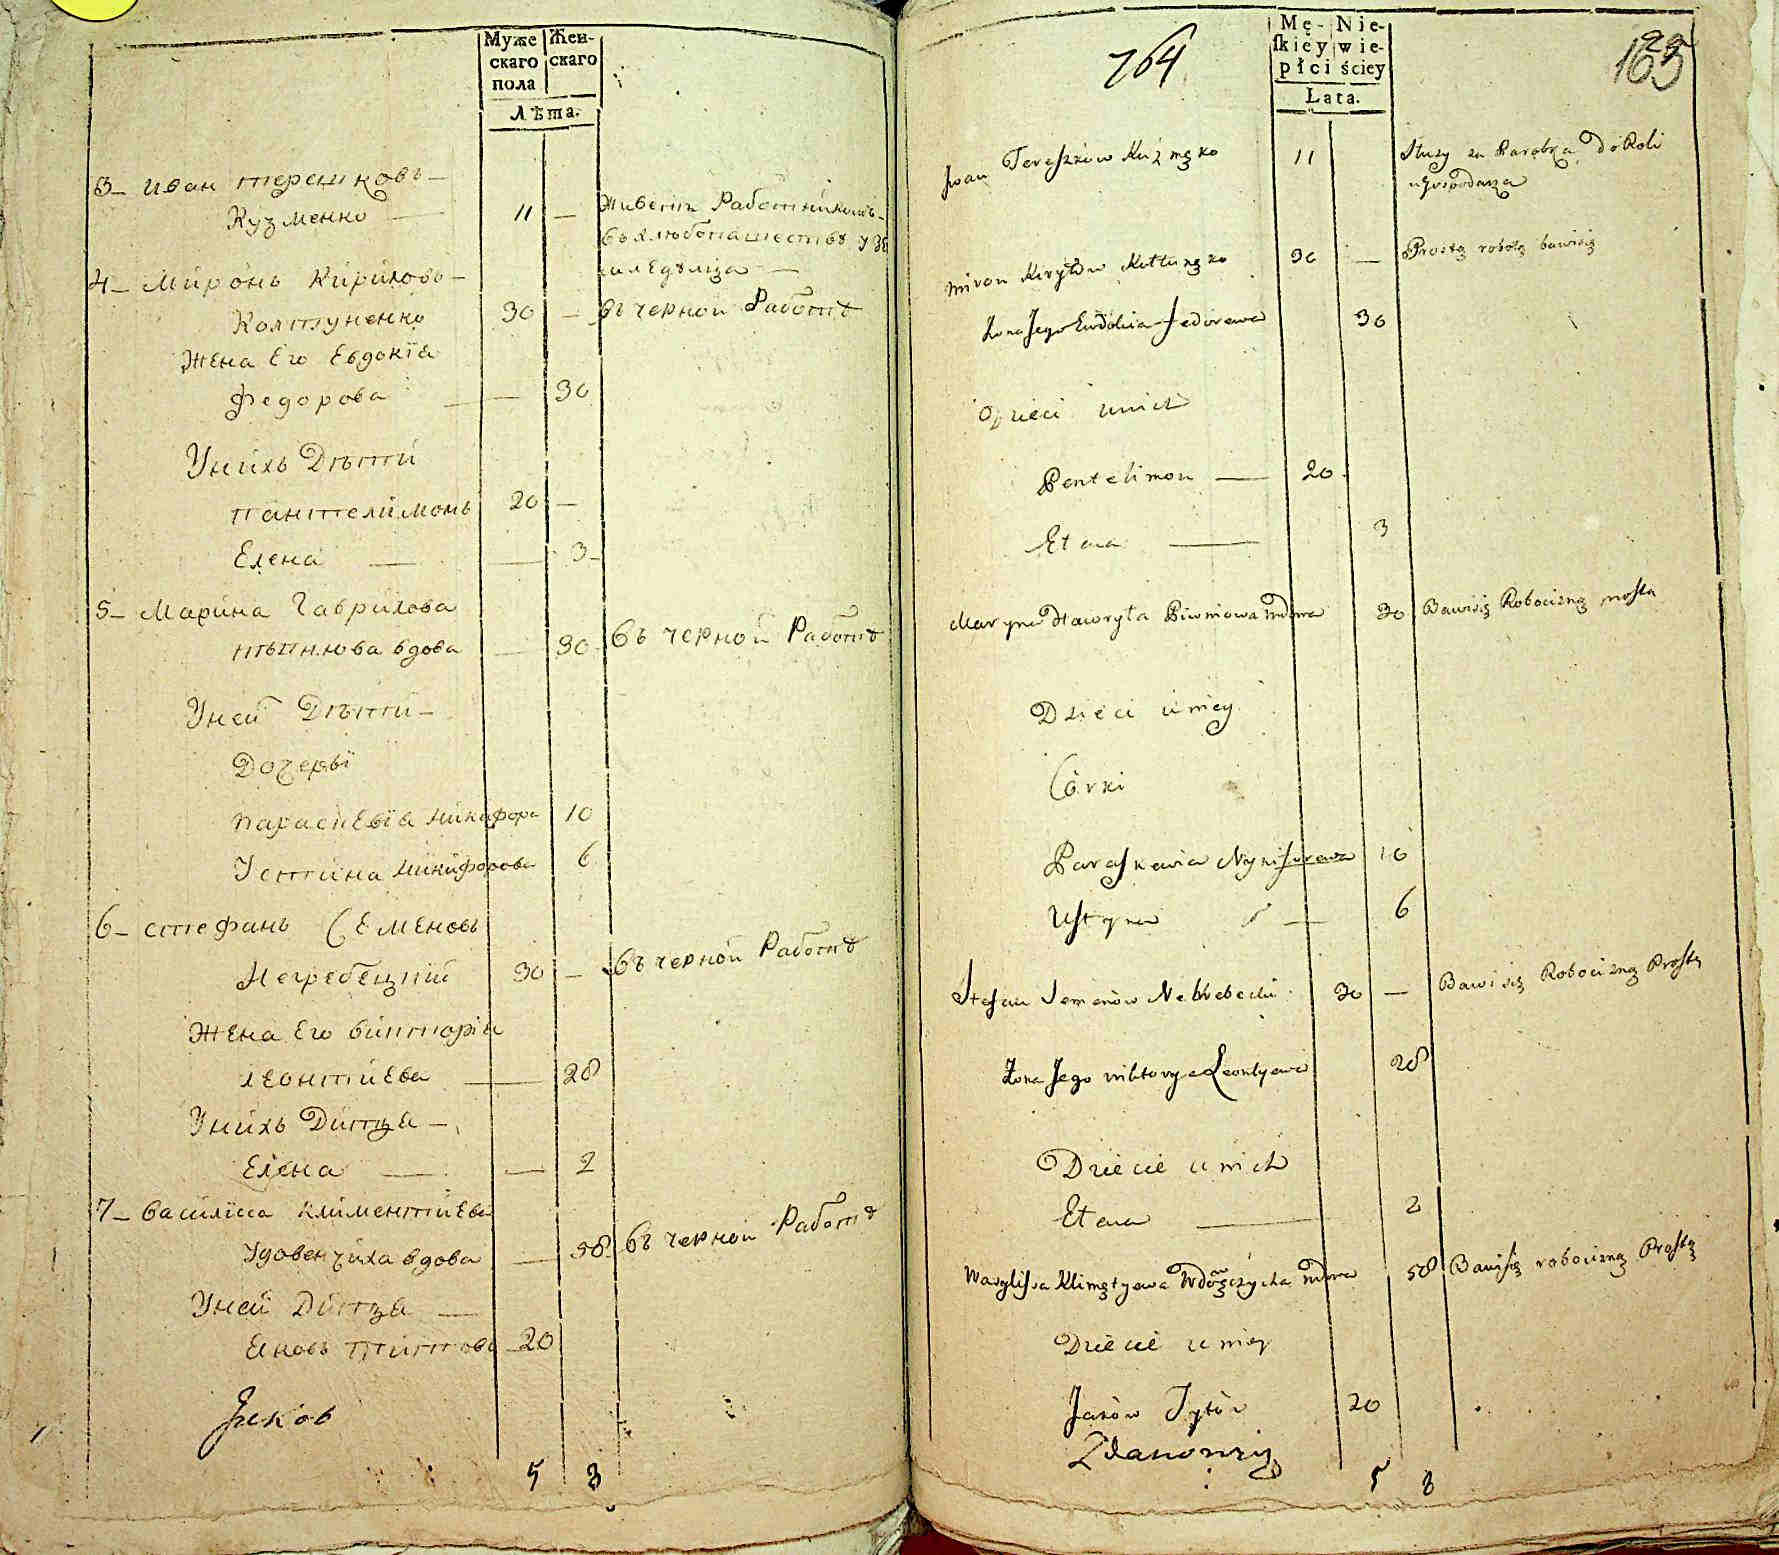 Муже Жен-
скаго скаго
пола
Лѣта.
3 - Иван Терешковъ -
Кузменко 11 - живетъ Работникомъ
въ хлюбопашествѣ у зе
миледѣлца -
4 - Миронъ Кириловъ -
Колтуненко 30 - въ черной Работѣ
жена Его Евдокїа
Федорова - 30
Унихъ Дѣтти
пантелимонъ 20 -
Елена - 3 -
5 - Марина Гаврилова
вдова - 30 въ черной Работѣ
Уней Дѣтти -
Дочерьї
параскевїа Никифора 10
Устина Никифорова 6
6 - Стефанъ Семеновъ
Негребецкий 30 - въ черной Работѣ
жена Его Викторїа
леонтиева - 28
Унихъ Дитца -
Елена - 2
7 - Василїса климентиева
Удовенчиха вдова - 58 въ черной Работѣ
Уней Дитца -
Яковъ титтовъ - 20
Яков
5 8
764
165
Mę- Nie-
ſkiey wie-
płci ściey
Lata.
Jwan Tereszków Kuzmęko 11 Służy za Parobka do Roli
u Gospodarza
Miron Kiryłów Kołtunęko 30 - Prostą robotą bawisię
Żona Jego Eudokia Fedorowa 30
Dzieci u nich
Pentelimon - 20
Elena - 3
Maryna Hawryła wdowa 30 Bawisię Robocizną prosta
Dzieci u niey
Córki
Paraskewia Nykiforowa 10
Ustyna - 6
Stefan Semenów Nehrebecki 30 - Bawi się Robocizną Prostą
Żona Jego wiktorya Leontyewa 28
Dziecie u nich
Elena - 2
Wasylissa Klimętyewa wdowa 58 Bawisię robocizną Prostą
Dziecie u niey
Jaków Tytów 20
Zdanowicz
5 8